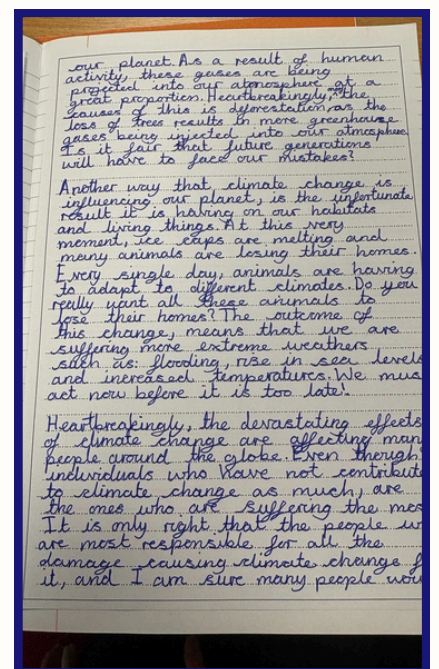 our planet. As a result of human
activity, these gases are being
projected into our atmosphere at a
great proportion. Heartbreakingly, the
causes of this is deforestation, as the
loss of trees results in more greenhouse
gases being injected into our atmosphere.
Is it fair that future generations
will have to face our mistakes?
Another way that climate change is
influencing our planet, is the unfortunate
result it is having on our habitats
and living things. At this very
moment, ice caps are melting and
many animals are losing their homes.
Every single day, animals are having
to adapt to different climates. Do you
really want all these animals to
lose their homes? The outcome of
this change, means that we are
suffering more extreme weathers
such as: flooding, rise in sea levels
and increased temperatures. We mus
act now before it is too late!
Heartbreakingly, the devastating effects
of climate change are affecting man
people around the globe. Even though
individuals who have not contribute
to climate change as much, are
the ones who are suffering the mos
It is only right that the people w
are most responsible for all the
damage causing climate change f
it, and I am sure many people wou